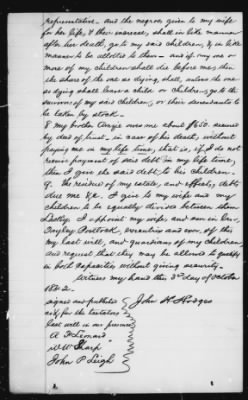 representative - and the negroes given to my wife
for her life, & their increase, shall in like manner
after her death, go to my said children, & in like
manner to be allotted to them - and if any one or
more of my children shall die before me, then
the share of the one so dying, shall, unless the one
so dying shall leave a child or children, go to the
survivors of my said children, or their descendants to
be taken by stock.
8 my brother owes me about $ secured
by deed of trust, in case of his death, without
paying me in my life time, that is, if I do not
receive payment of said debt in my life time,
then I give the said debt to his children.
9. the residue of my estate, and effects, debts
due me &c. I give to my wife and my
children, to be equally divided between them
Lastly. I appoint my wife, and son in law
Bayley executrix and exor, of this
my last will, and guardians of my children,
and request that they may be allowed to qualify
in both capacities without giving security.
witness my hand this 3rd day of October
1842.
signed and published John H. Hodges
as & for the testators
last will in our presence
A F Leonard
W W Sharp
John P Leigh